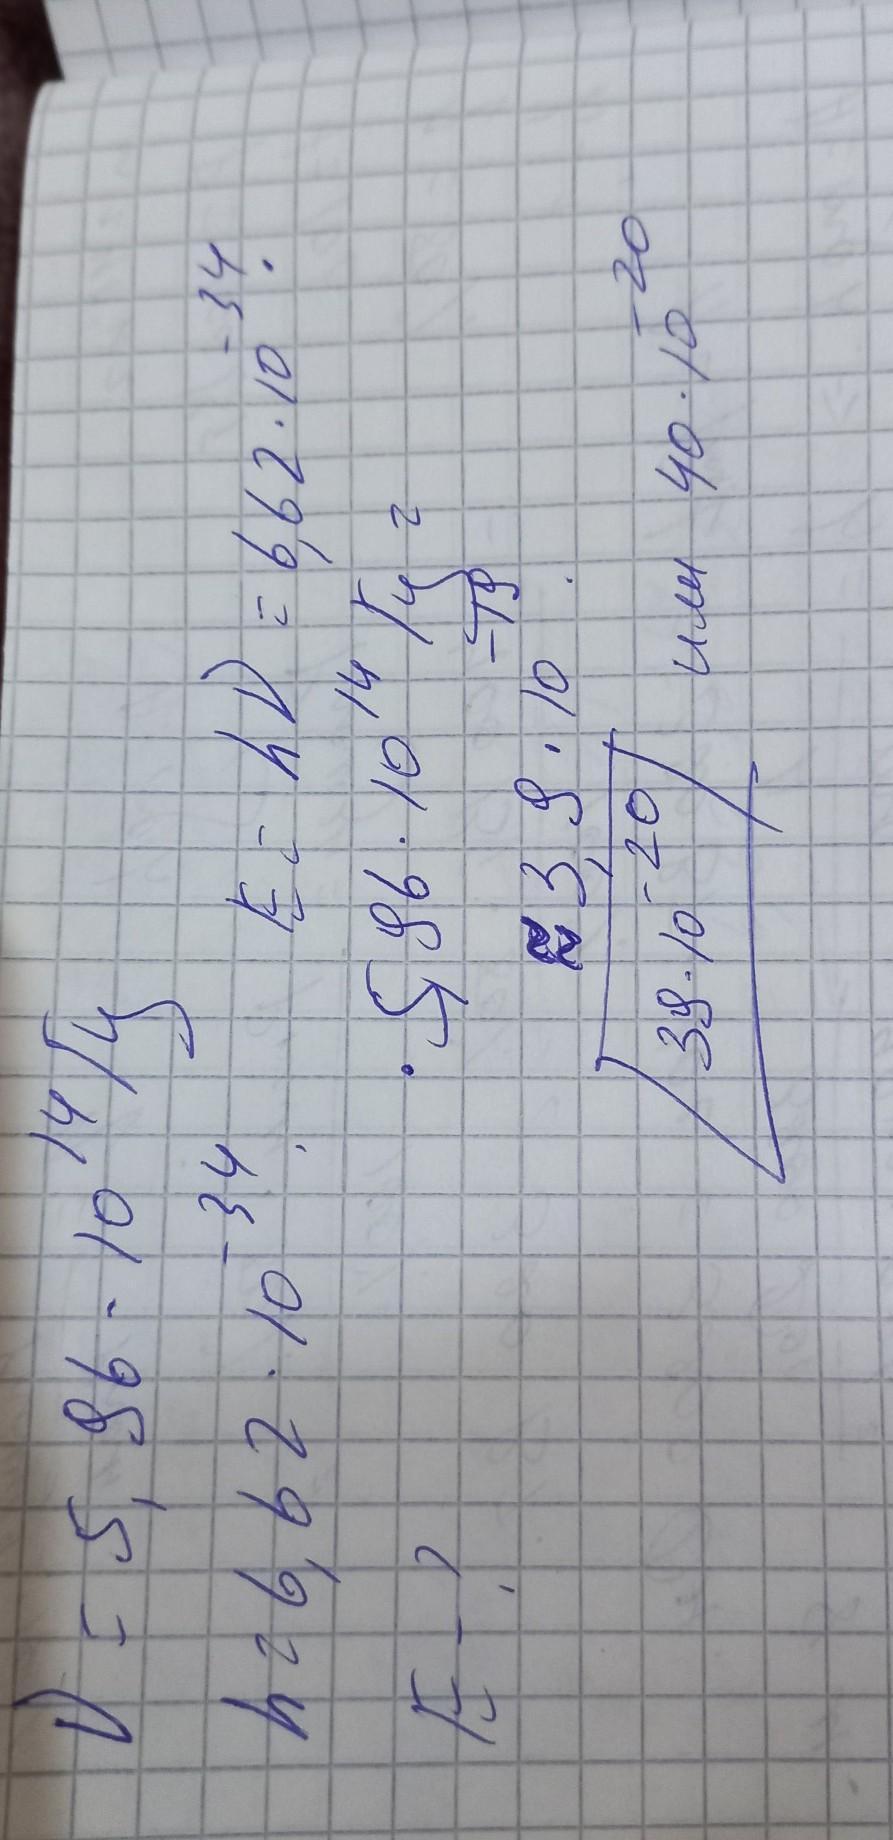 ν = 5,96 · 10¹⁴ Гц
h = 6,62 · 10⁻³⁴.
E - ?
E = hν = 6,62 · 10⁻³⁴ ·
· 5,96 · 10¹⁴ Гц =
≈ 3,9 · 10⁻¹⁹.
39 · 10⁻²⁰ или 40 · 10⁻²⁰